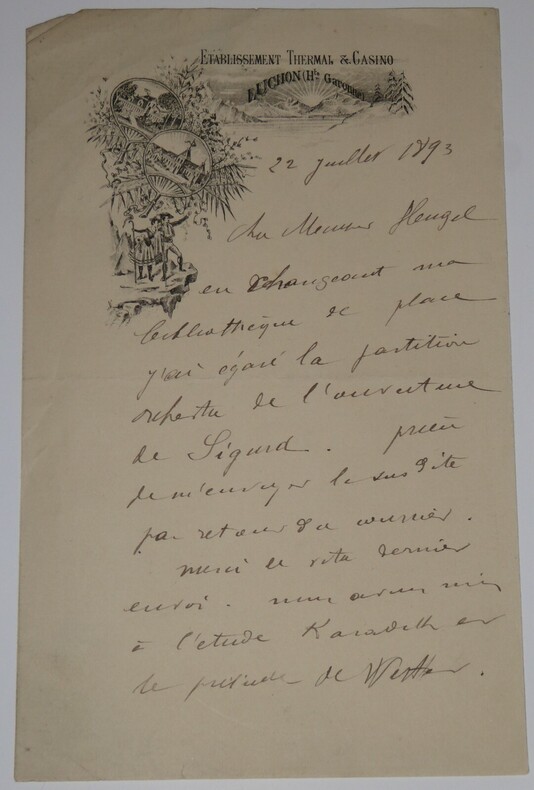 ETABLISSEMENT THERMAL & CASINO
LUCHON (Hte GARONNE)
22 juillet 1893
Cher Monsieur Heugel
en changeant ma
bibliothèque de place
j'ai égaré la partition
orchestre de l'ouverture
de Sigurd. prière
de m'envoyer la susdite
par retour du courrier.
merci de votre dernier
envoi. nous avons mis
à l'étude et
le prélude de Werther.